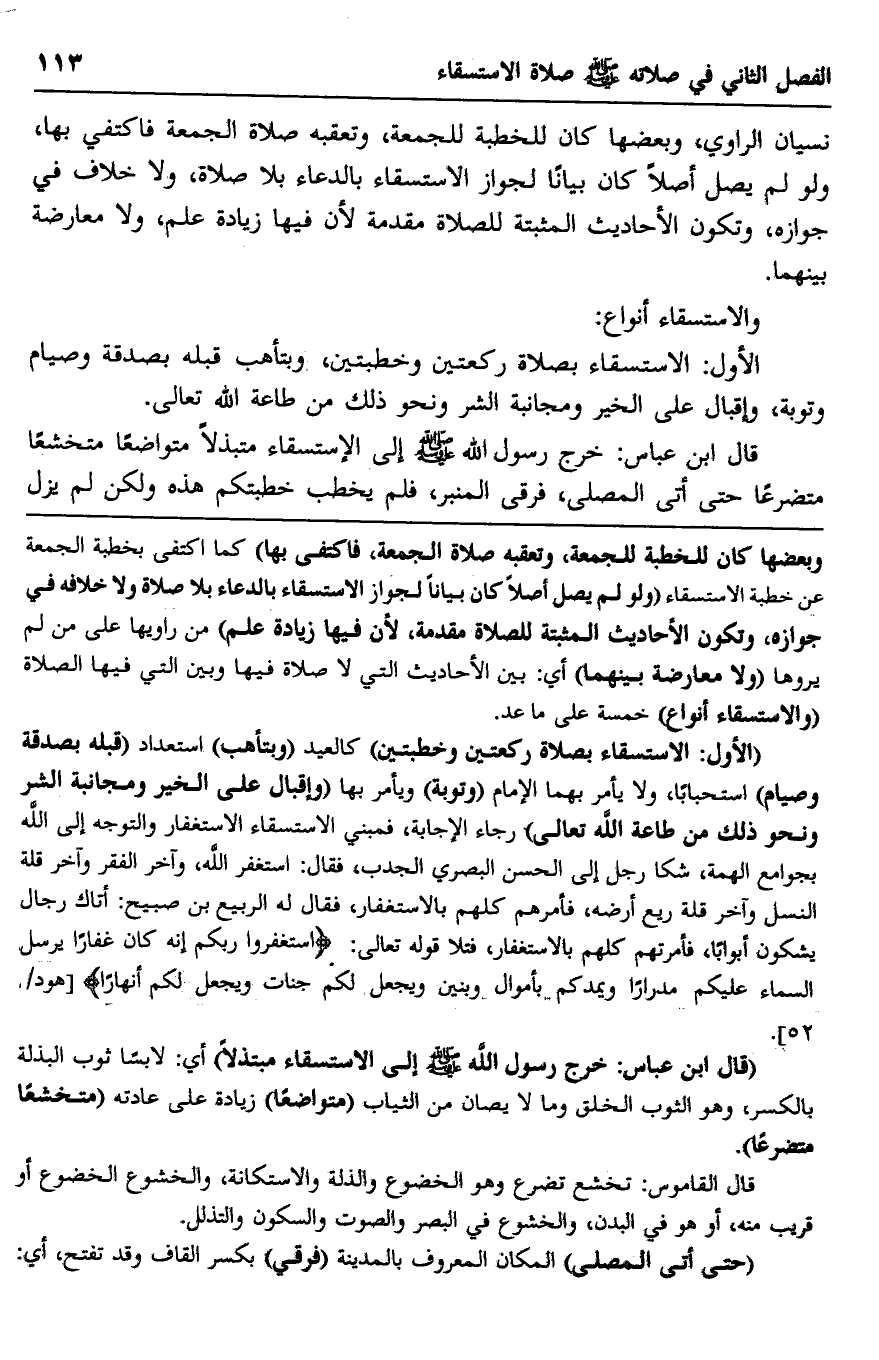 الفصل الثاني في صلاته ﷺ صلاة الاستسقاء ١١٣
نسيان الراوي، وبعضها كان للخطبة للجمعة، وتعقبه صلاة الجمعة فاكتفي بها،
ولو لم يصل أصلاً كان بيانًا لجواز الاستسقاء بالدعاء بلا صلاة، ولا خلاف في
جوازه، وتكون الأحاديث المثبتة للصلاة مقدمة لأن فيها زيادة علم، ولا معارضة
بينهما.
والاستسقاء أنواع:
الأول: الاستسقاء بصلاة ركعتين وخطبتين، ويتأهب قبله بصدقة وصيام
وتوبة، وإقبال على الخير ومجانبة الشر ونحو ذلك من طاعة الله تعالى.
قال ابن عباس: خرج رسول الله ﷺ إلى الإستسقاء متبذلاً متواضعًا متخشعًا
متضرعًا حتى أتى المصلى، فرقى المنبر، فلم يخطب خطبتكم هذه ولكن لم يزل
وبعضها كان للخطبة للجمعة، وتعقبه صلاة الجمعة، فاكتفى بها) كما اكتفى بخطبة الجمعة
عن خطبة الاستسقاء (ولو لم يصل أصلاً كان بياناً لجواز الاستسقاء بالدعاء بلا صلاة ولا خلافه في
جوازه، وتكون الأحاديث المثبتة للصلاة مقدمة، لأن فيها زيادة علم) من راويها على من لم
يروها (ولا معارضة بينهما) أي: بين الأحاديث التي لا صلاة فيها وبين التي فيها الصلاة
(والاستسقاء أنواع) خمسة على ما عد.
(الأول: الاستسقاء بصلاة ركعتين وخطبتين) كالعيد (ويتأهب) استعداد (قبله بصدقة
وصيام) استحبابًا، ولا يأمر بهما الإمام (وتوبة) ويأمر بها (وإقبال على الخير ومجانبة الشر
ونحو ذلك من طاعة اللَّه تعالى) رجاء الإجابة، فمبني الاستسقاء الاستغفار والتوجه إلى اللَّه
بجوامع الهمة، شكا رجل إلى الحسن البصري الجدب، فقال: استغفر اللَّه، وآخر الفقر وآخر قلة
النسل وآخر قلة ريع أرضه، فأمرهم كلهم بالاستغفار، فقال له الربيع بن صبيح: أتاك رجال
يشكون أبوابًا، فأمرتهم كلهم بالاستغفار، فتلا قوله تعالى: ﴿استغفروا ربكم إنه كان غفارًا يرسل
السماء عليكم مدرارًا ويمدكم بأموال وبنين ويجعل لكم جنات ويجعل لكم أنهارًا﴾ [هود/.
٥٢].
(قال ابن عباس: خرج رسول اللَّه ﷺ إلى الاستسقاء مبتذلاً) أي: لابسًا ثوب البذلة
بالكسر، وهو الثوب الخلق وما لا يصان من الثياب (متواضعًا) زيادة على عادته (متخشعًا
متضرعًا).
قال القاموس: تخشع تضرع وهو الخضوع والذلة والاستكانة، والخشوع الخضوع أو
قريب منه، أو هو في البدن، والخشوع في البصر والصوت والسكون والتذلل.
(حتى أتى المصلى) المكان المعروف بالمدينة (فرقي) بكسر القاف وقد تفتح، أي: